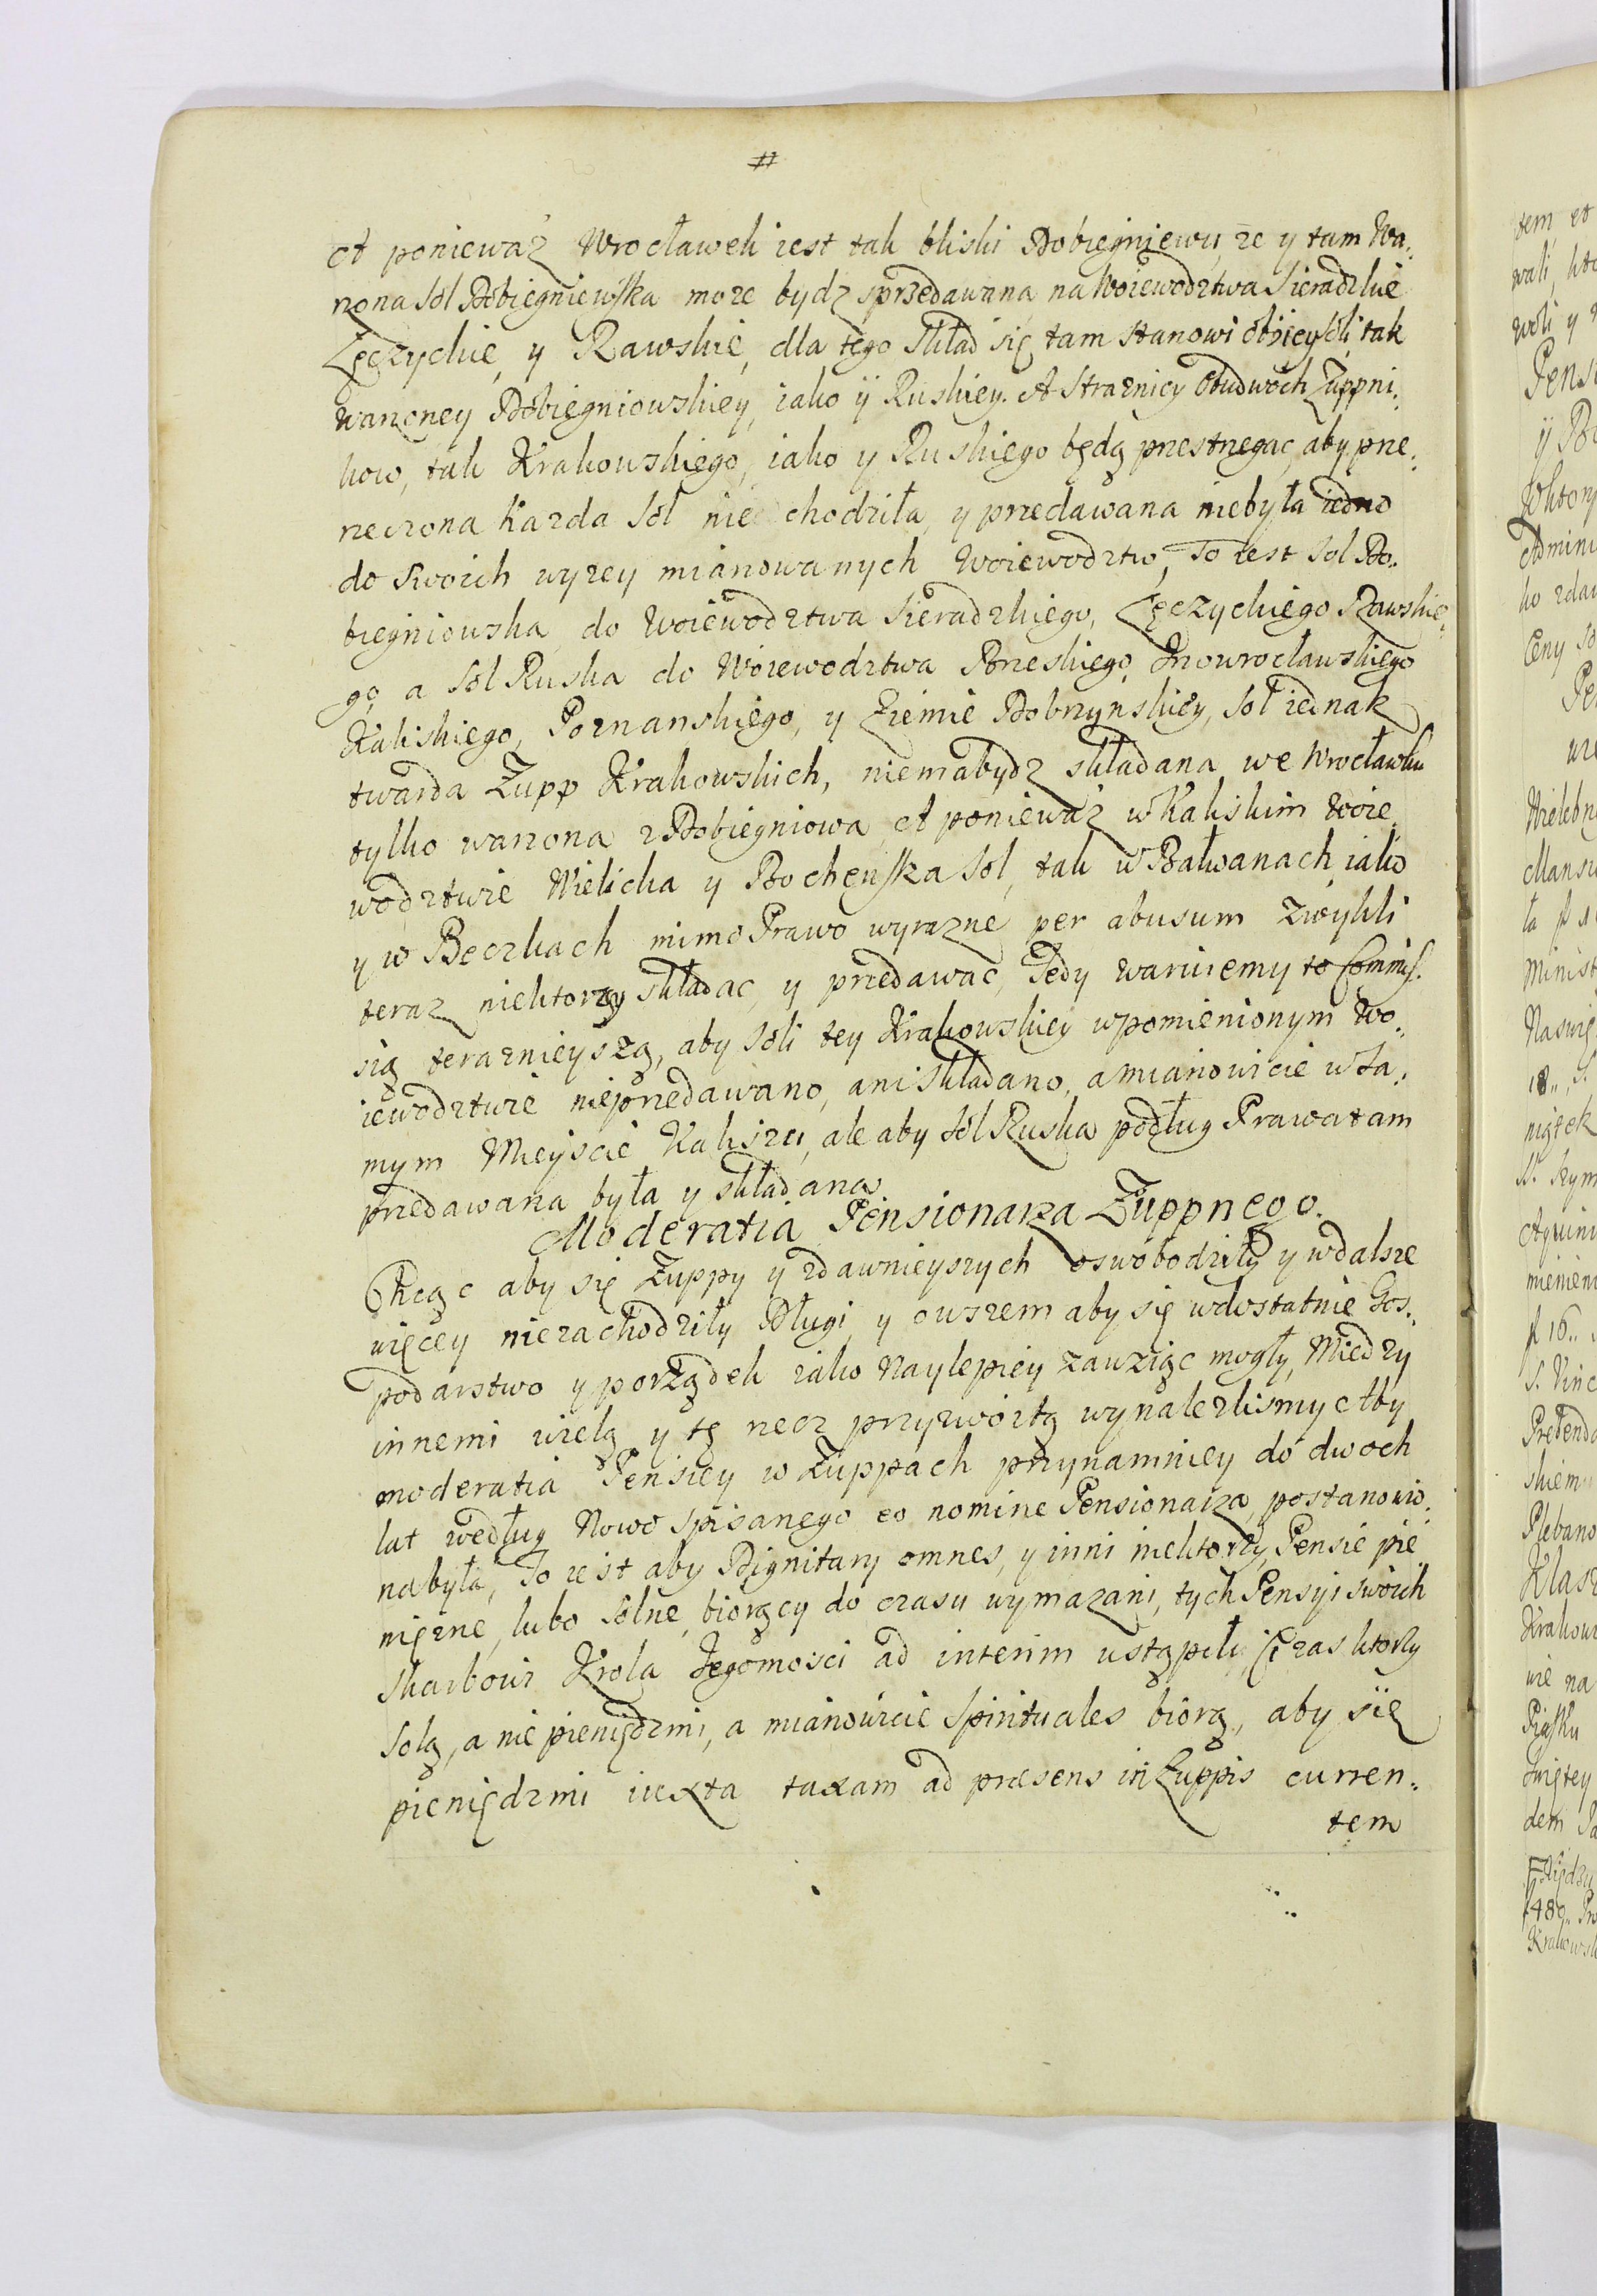 #
A poniewaz Wrocławek iest tak bliski Dobiegniewu, ze y tam Wa:
rzona Sol Dobiegniewska moze bydz sprzedawana na Woiewodztwa Sieradzkie
Łęczyckie, y Rawskie, dla tego Skład się tam stanowi oboiey Soli, tak
warzoney Dobiegniowskiey, iako ÿ Ruskiey. A Straznicy Obudwoch Zuppni:
kow, tak Krakowskiego, iako y Ruskiego będą przestrzegac, aby prze:
rzeczona kazda Sol nie chodziła, y przedawana niebyła iedno
do swoich wyzey mianowanych Woiewodztw, To iest Sol Do:
biegniowska do Woiewodztwa Sieradzkiego, Łęczyckiego Rawskie:
go, a Sol Ruska do Woiewodztwa Brzeskiego, Inowrocławskiego
Kaliskiego, Poznanskiego, y Ziemie Dobrzynskiey, Sol iednak
twarda Zupp Krakowskich, niema bydz składana we Wrocławku
tylko warzona z Dobiegniowa, A poniewaz w Kaliskim Woie
wodztwie Wielicka y Bochenska Sol, tak w Bałwanach, iako
y w Beczkach mimo Prawo wyrazne per abusum zwykli
teraz niektorzy składac, y przedawac, Tedy waruiemy tą Commis:
sią teraznieyszą, aby Soli tey Krakowskiey wpomienionym Wo:
iewodztwie nieprzedawano, ani składano, a mianowicie w sa:
mym Mieyscie Kaliszu, ale aby Sol Ruska podług Prawa tam
przedawana była y składana
Moderatia Pensionarza Zuppnego.
Chcąc aby się Zuppy y zdawnieyszych oswobodziły y wdalsze
więcey niezachodziły Długi, y owszem aby się wdostatnie Gos:
podarstwo y porządek iako Naylepiey zawziąc mogły, Miedzy
innemi wielą y tę rzecz przyzwoitą wynalezlismy Aby
moderatia Pensiey w Zuppach przynamniey do dwoch
lat według Nowo spisanego eo nomine Pensionarza, postanowio:
na była, To iest aby Dignitarij omnes, y inni niektorzy, Pensie pie
nięzne, lubo Solne, biorący do czasu wymazani, tych Pensyi swoich
skarbowi Krola Jegomosci ad interim ustąpili, Ci zas ktorzy
Solą, a nie pieniędzmi, a mianowicie Spirituales biorą, aby się
pieniędzmi iuxta taxam ad præsens in Zuppis curren:
tem